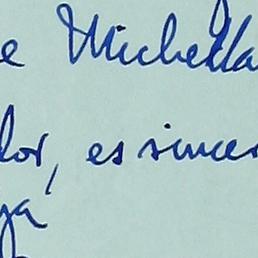 e Michella
lor, es sincer
ya